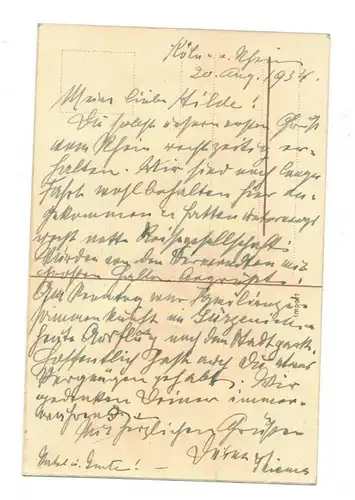 Köln a. Rhein
20. Aug. 1934.
Meine liebe Hilde!
Du sollst unsern ersten Gruß
vom Rhein rechtzeitig er-
halten. Wir sind nach langer
Fahrt wohlbehalten hier an-
gekommen u. hatten unterwegs
recht nette Reisegesellschaft.
Wurden von den Verwandten mit
großem Hallo begrüßt!
Am Sonntag war Familienzu-
sammenkunft im Gürzenich
heute Ausflug nach dem Stadtgarten.
Hoffentlich hast auch Du etwas
Vergnügen gehabt. Wir
gedenken Deiner immer-
während
Mit herzlichen Grüßen
Deine
Onkel u. Tante! –
Import